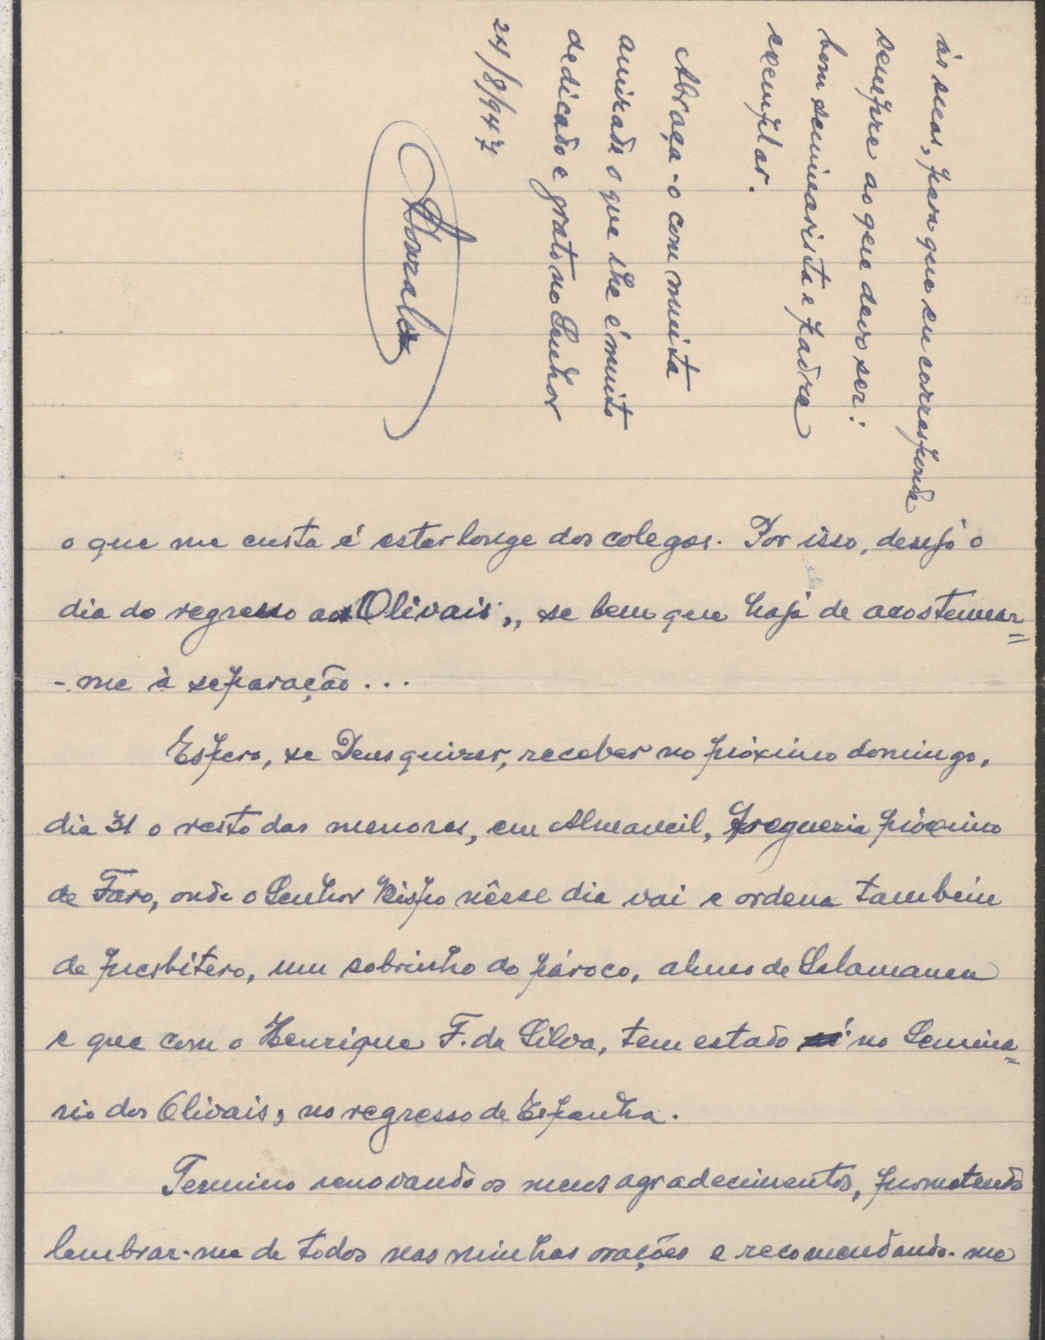 o que me custa é estar longe dos colegas. Por isso, desejo o
dia do regresso aos Olivais, se bem que haja de acostumar=
-me à separação...
Espero, se Deus quizer, receber no próximo domingo,
dia 31 o resto das menores, em Almancil, freguezia próximo
de Faro, onde o Senhor Bispo nêsse dia vai e ordena também
de presbítero, um sobrinho do pároco, aluno de Salamanca
e que com o Henrique F. da Silva, tem estado no Semina=
rio dos Olivais, no regresso de Espanha.
Termino renovando os meus agradecimentos, prometendo
lembrar-me de todos nas minhas orações e recomendando-me
às suas, para que eu corresponda
sempre ao que devo ser:
bom seminarista e padre
exemplar.
Abraça-o com muita
amizade o que lhe é muito
dedicado e grato no Senhor
24/8/947